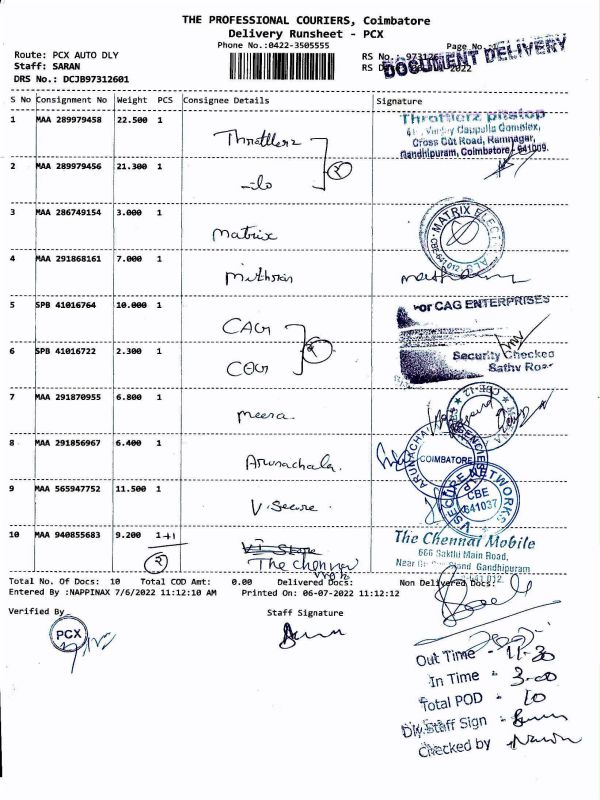 THE PROFESSIONAL COURIERS, Coimbatore
Delivery Runsheet - PCX
Phone No.:0422-3505555
Route: PCX AUTO DLY
Staff: SARAN
DRS No.: DCJB97312601
RS No.: 973126
Page No.
RS D 2022
DOCUMENT DELIVERY
S No Consignment No Weight PCS Consignee Details Signature
1 MAA 289979458 22.500 1 Throttlerz
Throttlerz pitstop
Cappella Complex,
Cross Cut Road, Ramnagar,
Gandhipuram, Coimbatore - 641009.
2 MAA 289979456 21.300 1
3 MAA 286749154 3.000 1 Matrix
MATRIX ELECTRICALS CBE-641 012
4 MAA 291868161 7.000 1 Mithran
5 SPB 41016764 10.000 1 CAG
For CAG ENTERPRISES
6 SPB 41016722 2.300 1 CAG
Security Checked
Sathy Road
7 MAA 291870955 6.800 1 Meera
MEERA CBE-12
8 MAA 291856967 6.400 1 Arunachala.
ARUNACHALA AGENCIES COIMBATORE
9 MAA 565947752 11.500 1 V. Secure
V SECURE NETWORKS CBE 641037
10 MAA 940855683 9.200 1+1 The Chennai
2
The Chennai Mobile
666 Sakthi Main Road,
Near Stand Gandhipuram
641 012
Total No. Of Docs: 10 Total COD Amt: 0.00 Delivered Docs: Non Delivered Docs:
Entered By :NAPPINAX 7/6/2022 11:12:10 AM Printed On: 06-07-2022 11:12:12
Verified By Staff Signature
PCX
Out Time - 11-30
In Time - 3-00
Total POD - 10
Dly.Staff Sign -
Checked by -